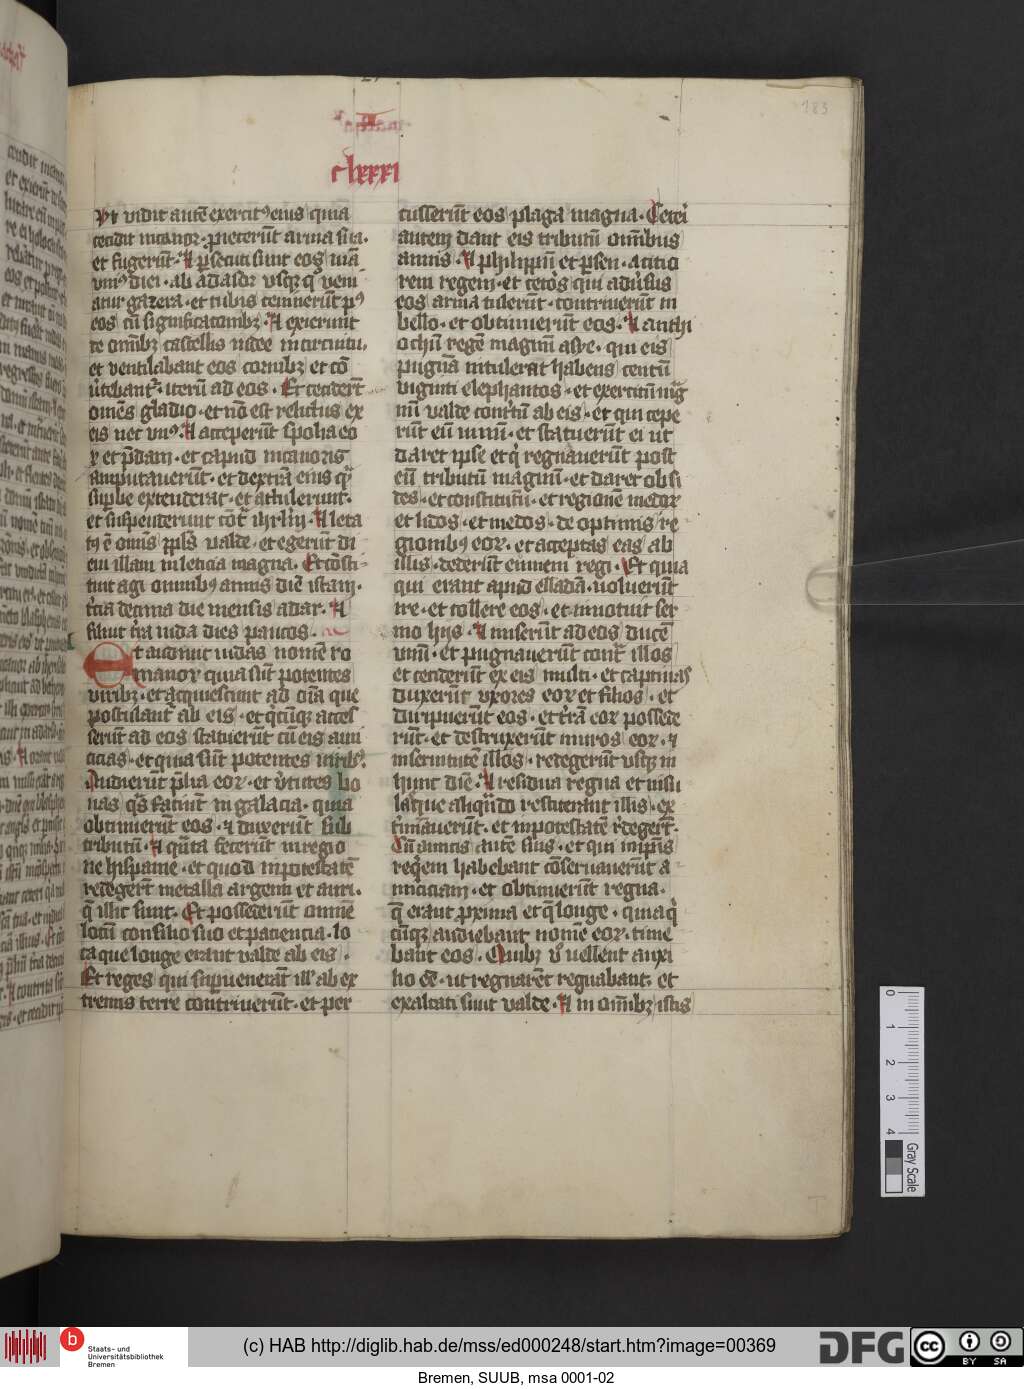 clxxxi
183
Vt vidit autē exercitꝰ eius quia
cecidit nicanor · proiecerūt arma sua ·
et fugerūt · ⁊ ꝑsecuti sunt eos uiā
vniꝰ diei · ab adasor vsqꝫ qͦ veni
atur gazera · et tubis cecinerūt pꝰ
eos cū significacionibꝫ · ⁊ exierunt
de omībꝫ castellis iudee in circuitu ·
et ventilabant eos cornibꝫ et cō
ūtebant̄ · iterū ad eos · Et cecidert̄
omēs gladio · et nō est relictus ex
eis nec vnꝰ · ⁊ acceperūt spolia eo
ꝝ et p̄dam · et capud nicanoris
amputauerūt · et dextrā eius qͣ
supbe extenderat · et attulerunt ·
et suspenderunt cōt̄ ihrl̄m · ⁊ leta
tꝰ ē omīs ppl̄s valde · et egerūt di
em illam in leticia magna · Et cōsti
tuit agi omnibꝰ annis diē istam ·
t̄cia decima die mensis adar · ⁊
siluit t̄ra iuda dies paucos ·
Et audiuit iudas nomē ro
manoꝝ quia sūt potentes
viribꝫ · et acquiescunt ad oīa que
postulant̄ ab eis · et qͥcūqꝫ acces
serūt ad eos statuerūt cū eis ami
cicias · et quia sūt potentes uiribꝫ ·
Audierūt p̄lia eoꝝ · et v̄tutes bo
nas qͣs faciūt in galacia · quia
obtinuerūt eos · ⁊ duxerūt sub
tributū · ⁊ qͣnta fecerūt in regio
ne hispanie · et quod in potestatē
redegert̄ metalla argenti et auri ·
q̄ illic sunt · Et possederūt omnē
locū consilio suo et paciencia · lo
ca que longe erant valde ab eis ·
Et reges qui supuenerat̄ ill' ab ex
tremis terre contriuerūt · et per
cusserūt eos plaga magna · Ceteri
autem dant eis tributū omībus
annis · ⁊ philippū et ꝑsen · a citio
rem regem · et cetōs qui adūsus
eos arma tulerūt · contriuerūt in
bello · et obtinuerūt eos · ⁊ anthi
ochū regē magnū asye · qui eis
pugnā intulerat habens centū
viginti elephantos · et exercitū mg̈
nū valde cont'tū ab eis · et qui cepe
rūt eū uiuū · et statuerūt ei ut
daret ipse et qͥ regnauerūt post
eū tributū magnū · et daret obsi
des · et constitutū · et regionē medoꝝ
et lidos · et medos · de optimis re
gionibꝰ eoꝝ · et acceptas eas ab
illis · dederūt eumem regi · Et quia
qui erant apud elladā · uoluerūt
ire · et tollere eos · et innotuit ser
mo hijs · ⁊ miserūt ad eos ducē
vnū · et pugnauerūt cont̄ illos
et ceciderūt ex eis multi · et captiuas
duxerūt vxores eoꝝ et filios · et
diripuerūt eos · et t̄rā eoꝝ possede
rūt · et destruxerūt muros eoꝝ · ⁊
in seruitutē illos · redegerūt vsqꝫ in
hunc diē · ⁊ residua regna et insu
las que aliqn̄do restiterant illis · ex
t̄minauerūt · et in potestatē r̄degert̄ ·
Cū amicis autē suis · et qui in ip̄is
reqͥem habebant cōseruauerūt a
miciciam · et obtinuerūt regna ·
q̄ erant ꝓxima et q̄ longe · quia qͥ
cūqꝫ audiebant nomē eoꝝ · time
bant eos · Quibꝫ v̊ uellent auxi
lio eē · ut regnarēt regnabant · et
exaltati sunt valde · ⁊ in omībꝫ istis
0
1
2
3
4
Gray Scale
b
Staats- und
Universitätsbibliothek
Bremen
(c) HAB http://diglib.hab.de/mss/ed000248/start.htm?image=00369
DFG
cc BY SA
Bremen, SUUB, msa 0001-02